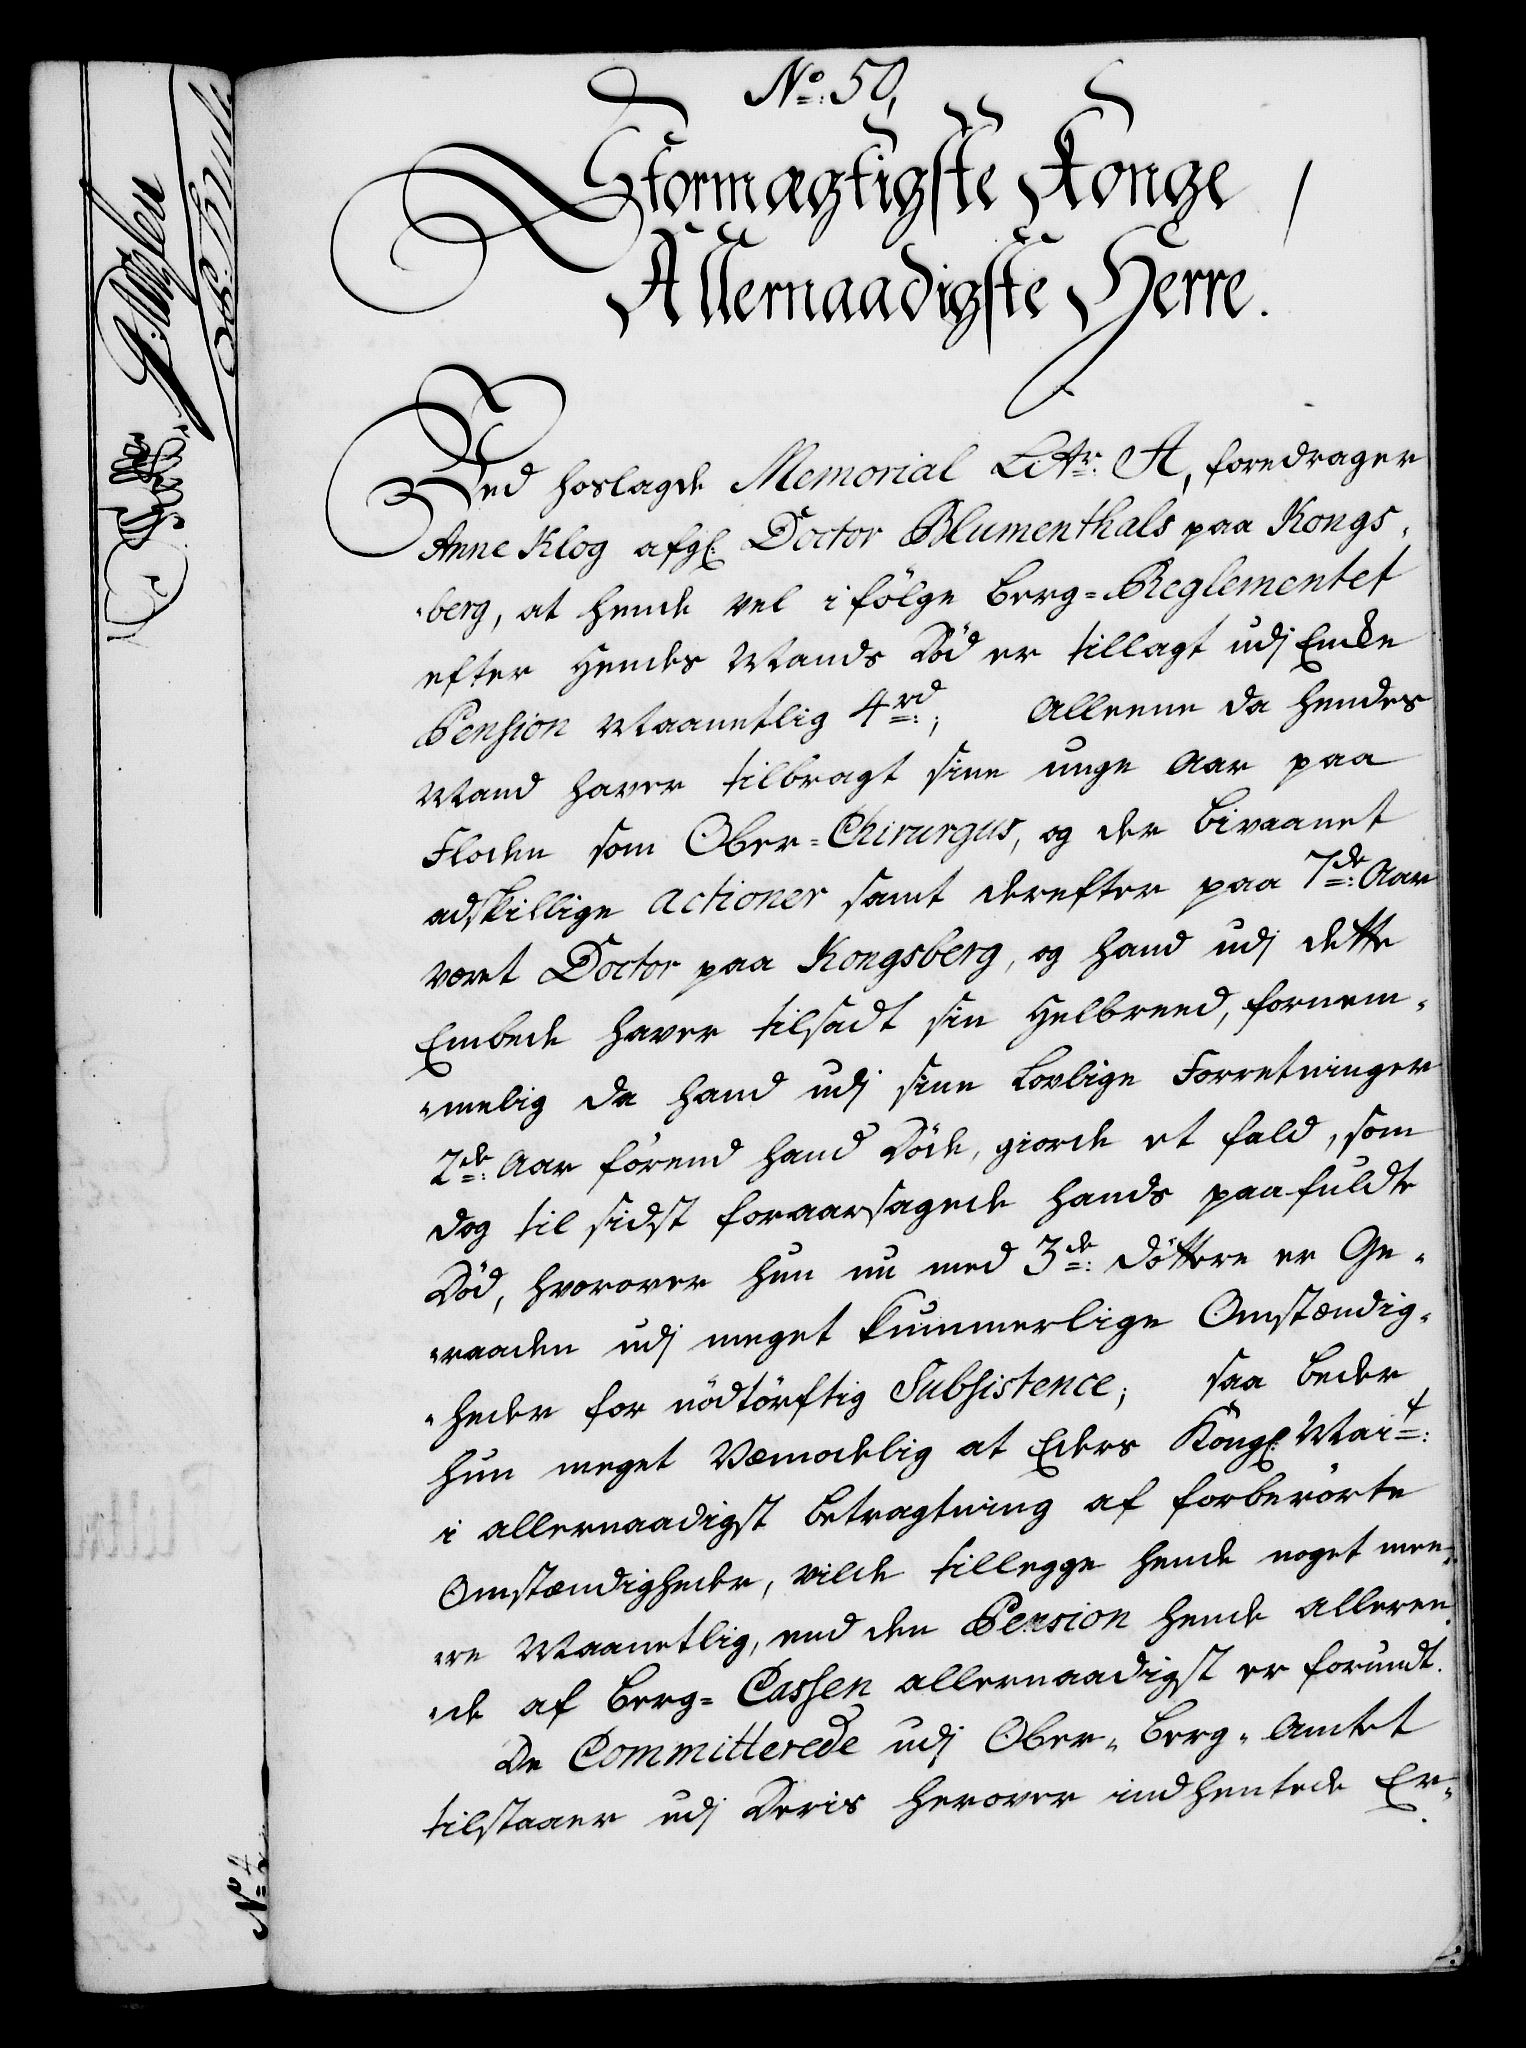 No: 50,
Stormægtigste Konge
Allernaadigste Herre.
Ved hoslagde Memorial Litr: A, foredrager
Anne Klog afgl: Doctor Blumenthals paa Kongs-
-berg, at hende vel i følge Berg-Reglementet
efter Hendes Mands Død er tillagt udj Encke
Pension Maanetlig 4 rd:; Alleene da hendes
Mand haver tilbragt sine unge Aar paa
Floden som Ober-Chirurgus, og der bivaanet
adskillige actioner samt derefter paa 7de: Aar
været Doctor paa Kongsberg, og hand udj dette
Embede haver tilsadt sin Helbreed, fornem-
-melig da hand udj sine Lovlige Forretninger
2de: Aar førend hand Døde, giorde et fald, som
dog til sidst foraarsagede hands paafuldte
Død, hvorover hun nu med 3de: Døttre er Ge-
-raaden udj meget kummerlige Omstændig-
-heder for nødtørftig Subsistence; saa beder
hun meget Vemodelig at Eders Kongl: Mait:
i allernaadigst betragtning af forberørte
Omstændigheder, vilde tillegge hende noget mee-
-re Maanetlig, end den Pension hende alleree-
-de af Berg-Cassen allernaadigst er forundt.
De Committerede udj Ober-Berg-Amtet
tilstaaer udj Deris herover indhentede Er-
No 4